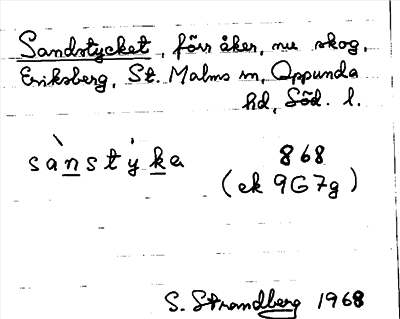 Sandstycket, förr åker, nu skog,
Eriksberg, St. Malms sn, Oppunda
hd, Söd. l.
sànstýka 868
(ek 9G7g)
S. Strandberg 1968